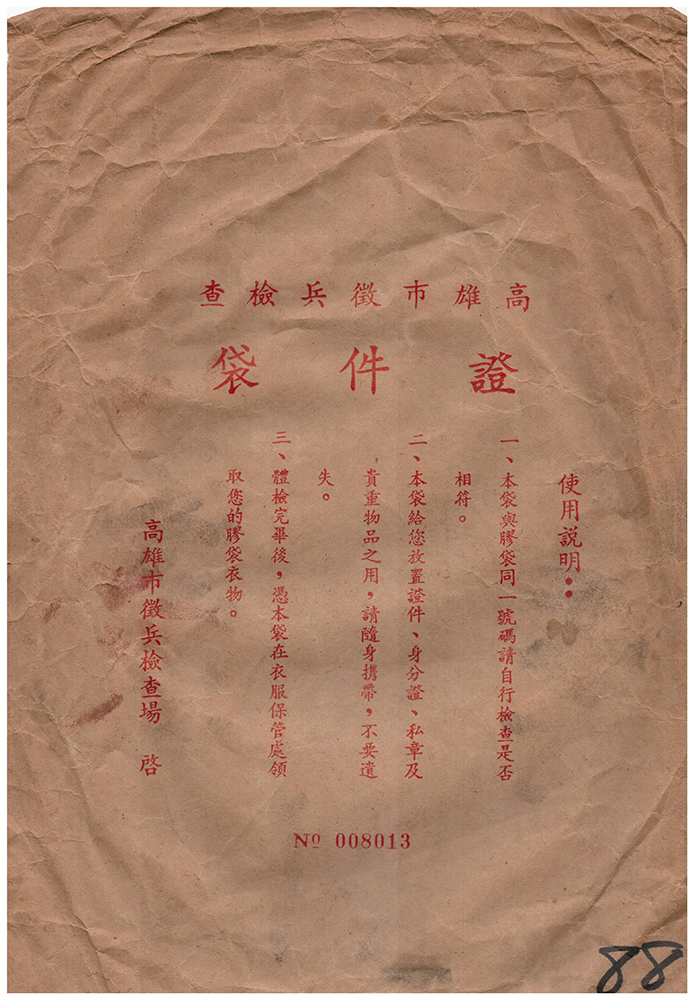 高雄市徵兵檢查
證件袋
使用說明：
一、本袋與膠袋同一號碼請自行檢查是否
相符。
二、本袋給您放置證件、身分證、私章及
貴重物品之用，請隨身携帶，不要遺
失。
三、體檢完畢後，憑本袋在衣服保管處領
取您的膠袋衣物。
高雄市徵兵檢查場　啓
Nº 008013
88